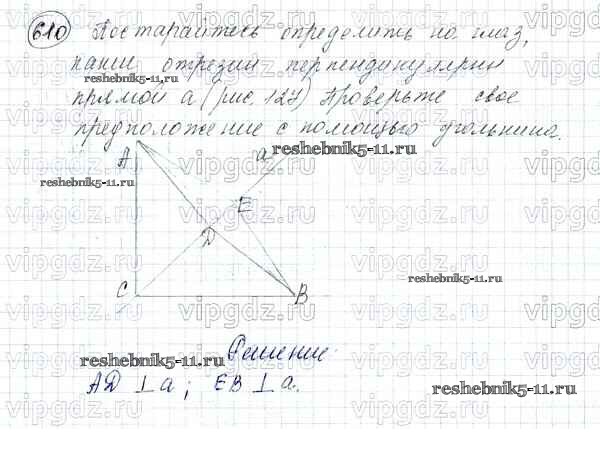 610 Постарайтесь определить на глаз,
какие отрезки перпендикулярны
reshebnik5-11.ru
прямой а (рис. 127) Проверьте свое
предположение с помощью угольника.
reshebnik5-11.ru
A a
reshebnik5-11.ru
E
D
reshebnik5-11.ru
C B
Решение
reshebnik5-11.ru
AD ⊥ a; EB ⊥ a.
reshebnik5-11.ru
vipgdz.ru vipgdz.ru vipgdz.ru vipgdz.ru